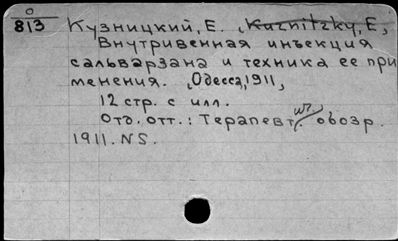 0
813 Кузницкий, Е. (Kuznitzky, E,
Внутривенная инъекция
сальварзана и техника ее при
менения. (Одесса, 1911,
12 стр. с илл.
Отд. отт.: Терапевт. обозр.
1911. N5.